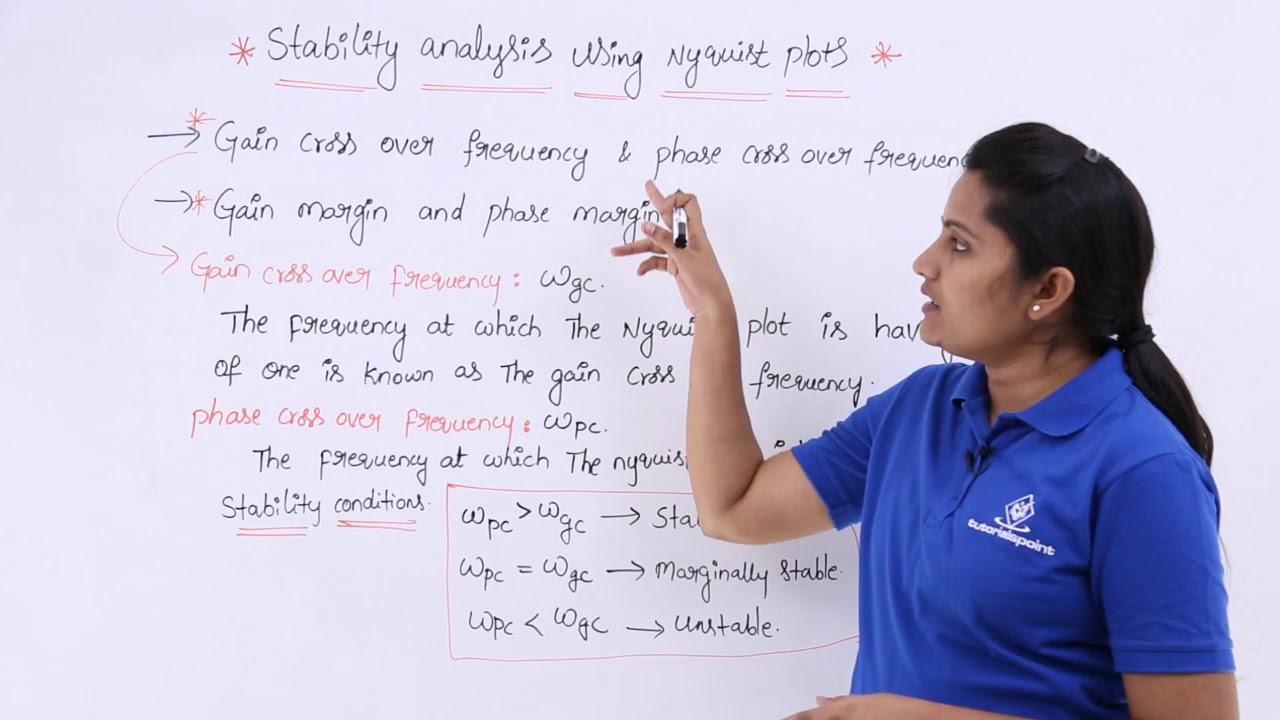 * Stability analysis using Nyquist plots *
→ * Gain cross over frequency & phase crss over
→ * Gain margin and phase margin
→ Gain crss over frequency: ωgc.
The frequency at which The plot is
of one is known as The gain cross frequency.
phase crss over frequency: ωpc.
The frequency at which The
Stability conditions.
ωpc > ωgc →
ωpc = ωgc → Marginally stable.
ωpc < ωgc → Unstable.
tutorialspoint